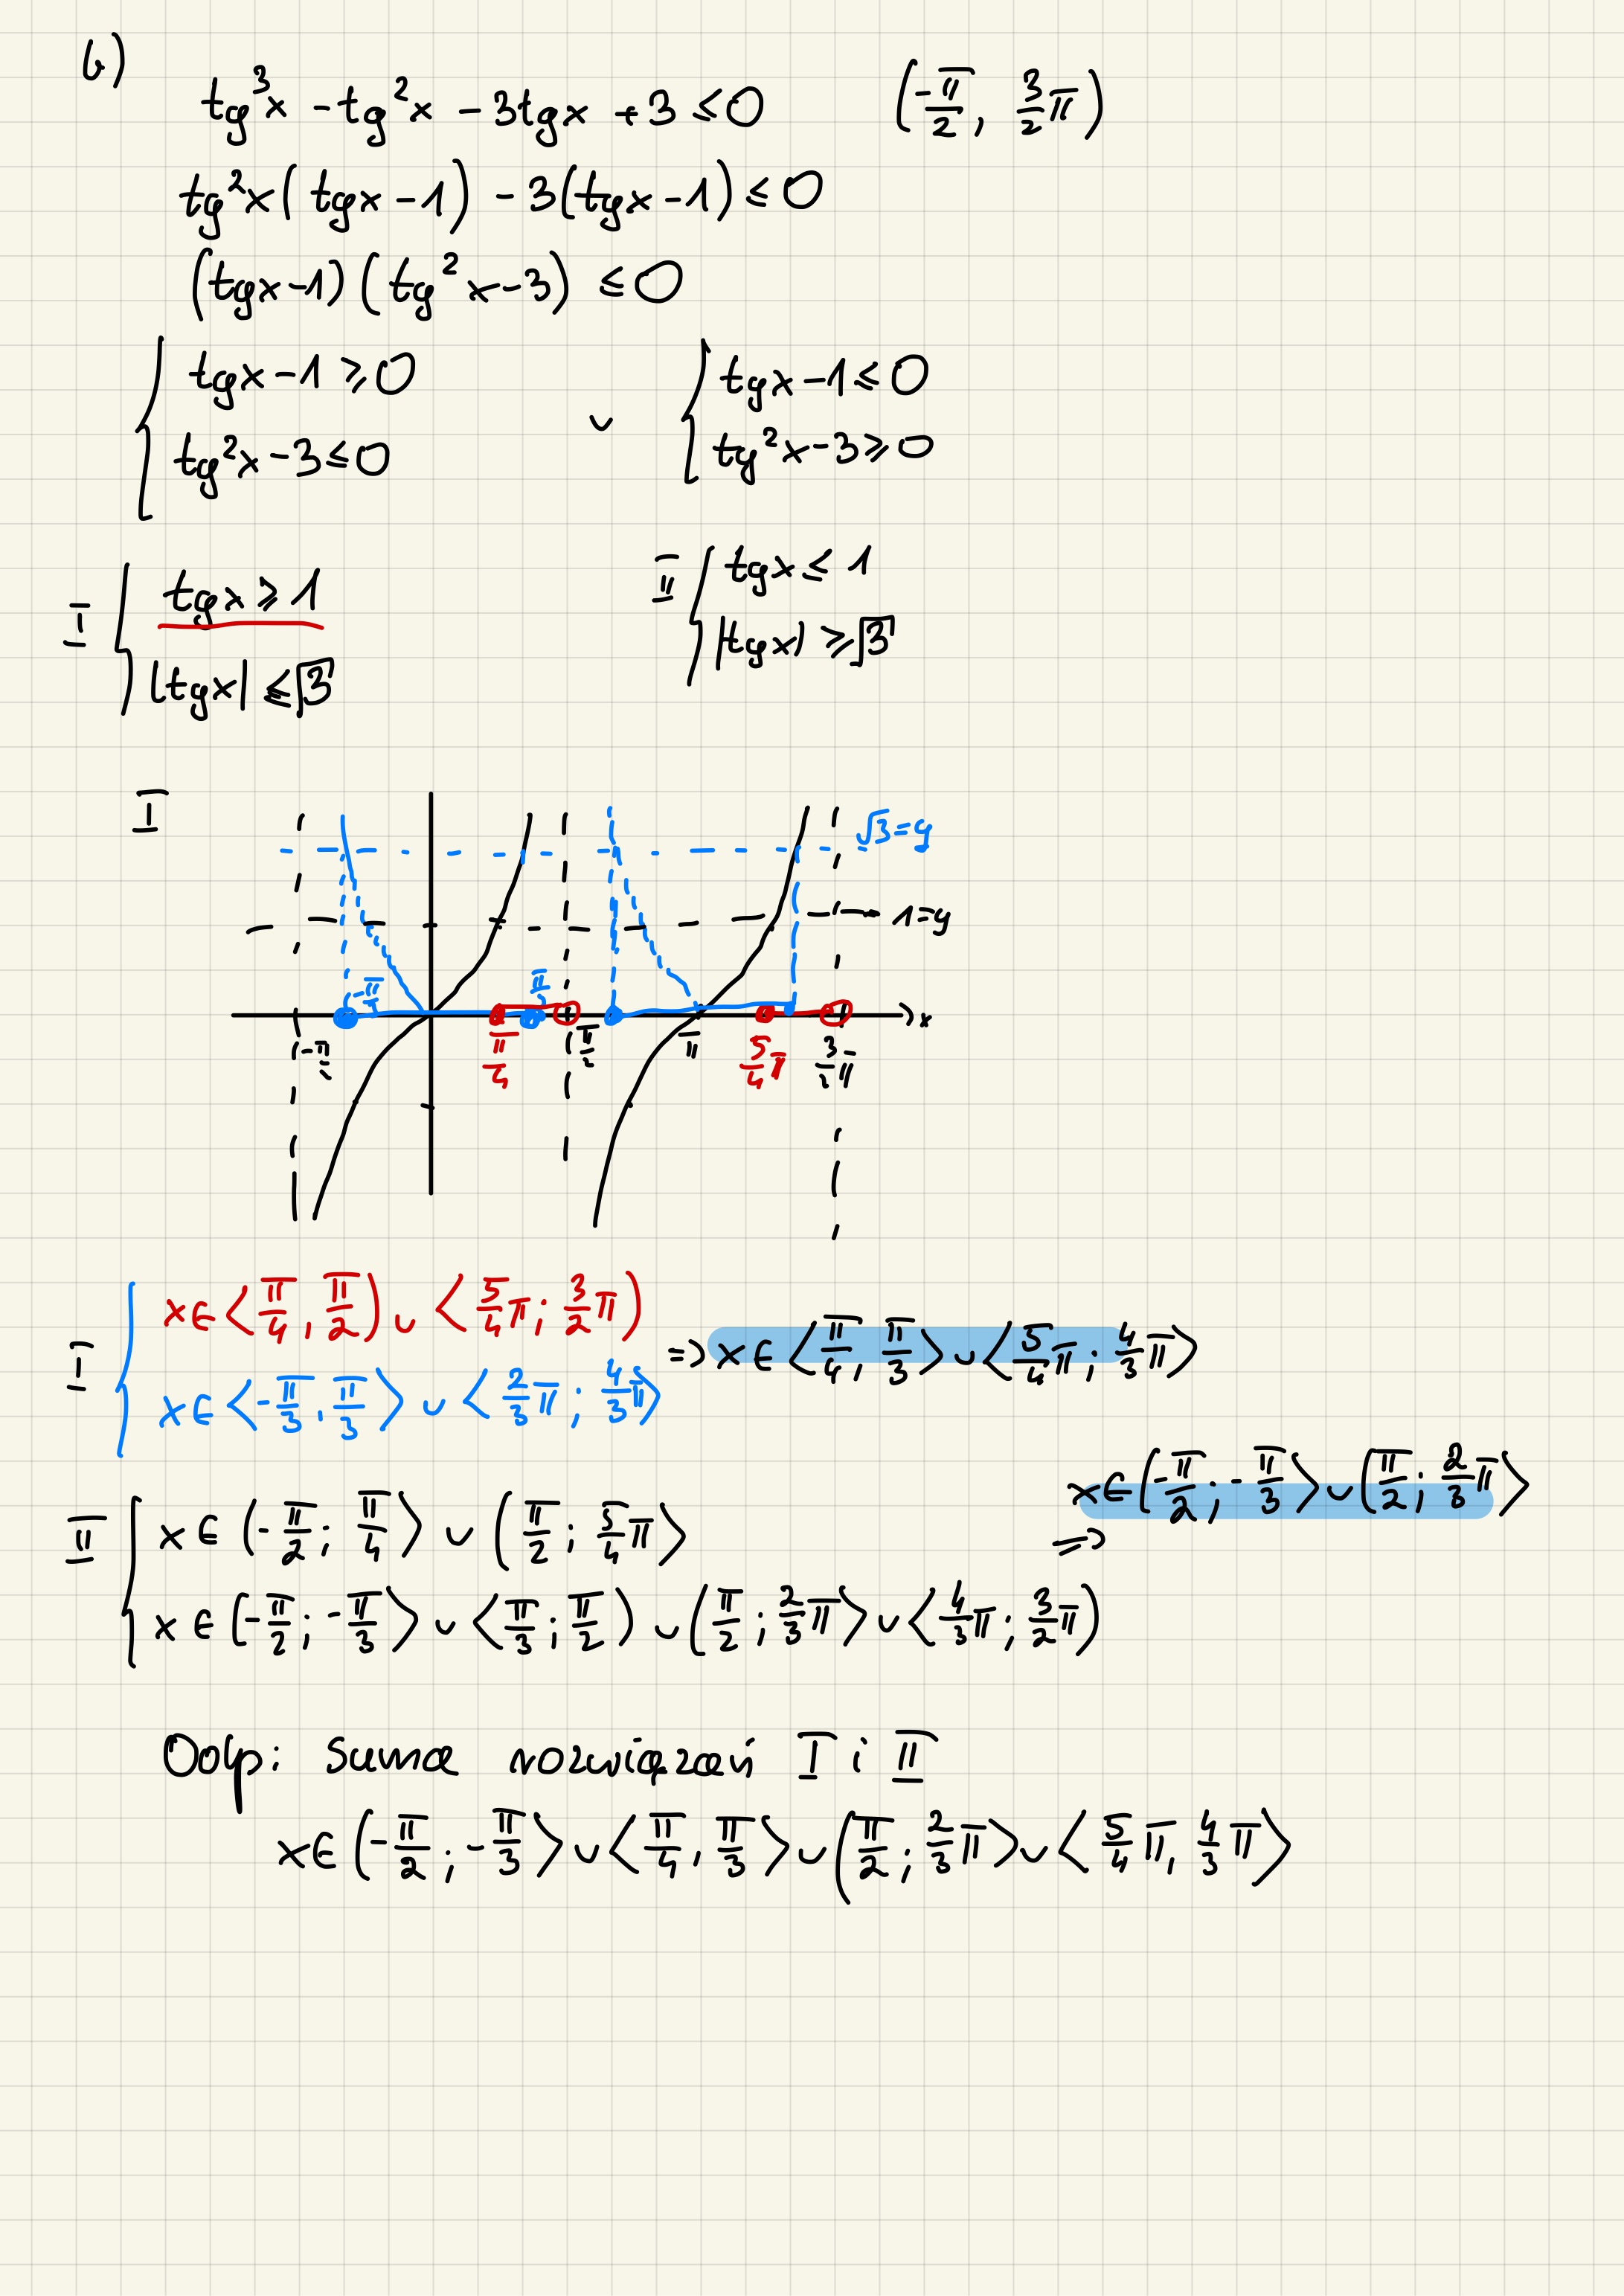 b)
tg³x - tg²x - 3tgx + 3 ≤ 0 (-π/2, 3/2π)
tg²x(tgx - 1) - 3(tgx - 1) ≤ 0
(tgx - 1)(tg²x - 3) ≤ 0
{ tgx - 1 ≥ 0 ∨ { tgx - 1 ≤ 0
tg²x - 3 ≤ 0 tg²x - 3 ≥ 0
I { tgx ≥ 1 II { tgx ≤ 1
|tgx| ≤ √3 |tgx| ≥ √3
I
√3 = y
1 = y
-π/3 π/3
x
-π/2 π/4 π/2 π 5/4π 3/2π
I { x ∈ <π/4, π/2) ∪ <5/4π; 3/2π)
x ∈ <-π/3, π/3> ∪ <2/3π; 4/3π> => x ∈ <π/4, π/3> ∪ <5/4π; 4/3π>
II { x ∈ (-π/2; π/4> ∪ (π/2; 5/4π> => x ∈ (-π/2; -π/3> ∪ (π/2; 2/3π>
x ∈ (-π/2; -π/3> ∪ <π/3; π/2) ∪ (π/2; 2/3π> ∪ <4/3π; 3/2π)
Odp: Suma rozwiązań I i II
x ∈ (-π/2; -π/3> ∪ <π/4, π/3> ∪ (π/2; 2/3π> ∪ <5/4π, 4/3π>